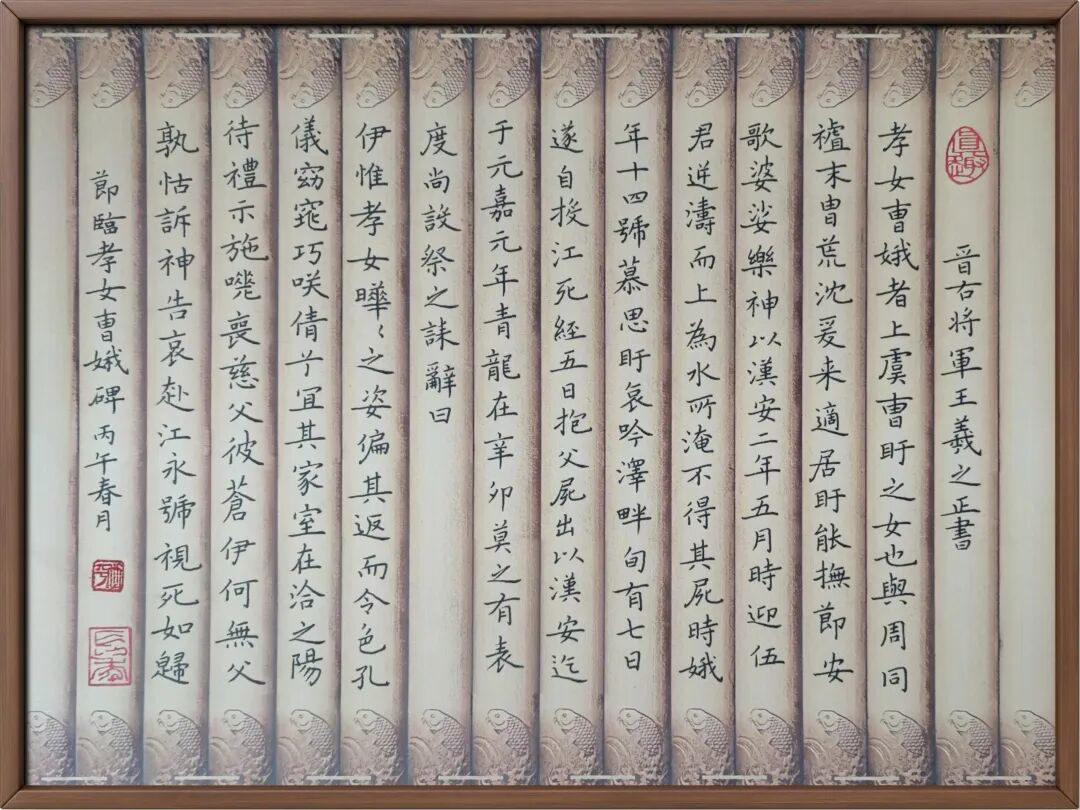 晉右将軍王羲之正書
孝女曺娥者上虞曺盱之女也與周同
禇末曺荒沈爰来適居盱能撫節安
歌婆娑樂神以漢安二年五月時迎伍
君逆濤而上為水所淹不得其屍時娥
年十四號慕思盱哀吟澤畔旬有七日
遂自投江死經五日抱父屍出以漢安迄
于元嘉元年青龍在辛卯莫之有表
度尚設祭之誄辭曰
伊惟孝女曄〻之姿偏其返而令色孔
儀窈窕巧咲倩兮宜其家室在洽之陽
待禮示施嗟喪慈父彼蒼伊何無父
孰怙訴神告哀赴江永號視死如歸
節臨孝女曺娥碑 丙午春月